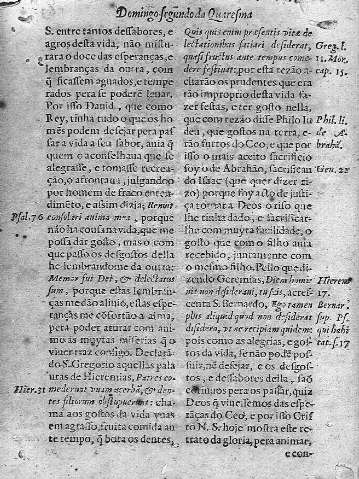 Domingo segundo da Quaresma
S. entre tantos dessabores, e
agros desta vida, não mistu-
rara o doce das esperanças, e
lembranças da outra, com
q̃ ficassem aguados, e tempe
rados pera se poder levar.
Por isso David, que como
Rey, tinha tudo o que os ho
mẽs podem desejar pera pas
sar a vida a seu sabor, avia q̃
quem o aconselhava que se
alegrasse, e tomasse recrea-
ção, o afrontava, julgandoo
por homem de fraco enten
dimẽto, e assim dizia: Renuit
Psal. 76 consolari anima mea, porque
não ha cousa na vida, que me
possa dar gosto, mas o com
que passo os desgostos della
he lembrandome da outra:
Memor fui Dei, & delectatus
sum, porque estas lembran-
ças me dão alivio, estas espe-
ranças me cõfortão a alma,
pera poder aturar com ani-
mo as muytas miserias q̃ o
viver traz consigo. Declarã-
do S. Gregorio aquellas pala
Hier. 31 vras de Hieremias, Patres co-
mederunt uvam acerbã, & den-
tes filiorum obstupuerunt: cha
ma aos gostos da vida uvas
em agrasso, fruita comida an
te tempo, q̃ bota os dentes,
Quis quis enim præsentis vitæ de
lectationibus satiari desiderat,
quasi fructus ante tempus come
dere festinat: por esta rezão a-
charão os prudentes que era
tão improprio desta vida fa-
zer festas, e ter gosto nella,
que com rezão disse Philo Iu
dea, que gostos na terra, e-
rão furtos do Ceo, e que por
isso o mais aceito sacrificio
foy o de Abrahão, sacrifican
do Isaac (que quer dizer ri-
zo) porque foy acto de justi-
ça tornar a Deos o riso que
lhe tinha dado, e sacrificar-
lhe com muyta facilidade, o
gosto que com o filho avia
recebido, juntamente com
o mesmo filho. Pello que di-
zendo Geremias, Diem homi-
nis non desideravi, tu scis, acres-
centa S. Bernardo, Ego tamen
plus aliquid quid non desiderat
desidero, ut
pois como as alegrias, e go-
stos da vida, se não pode pos-
suir, nẽ desejar, e os desgos-
tos, e dessabores della, são
contiros pera os passar, quiz
Deos q̃ vivessemos das espe-
rãças do Ceo, e por isso Cris
to N. S. hoje mostra este re-
trato da gloria, pera animar,
e con-
Greg. l.
11. Mor.
cap. 15.
Phil. li.
de A-
brahã.
Gen. 22
Hierem
17.
Bernar.
sup. Ps.
qui habi
tat. s. 17